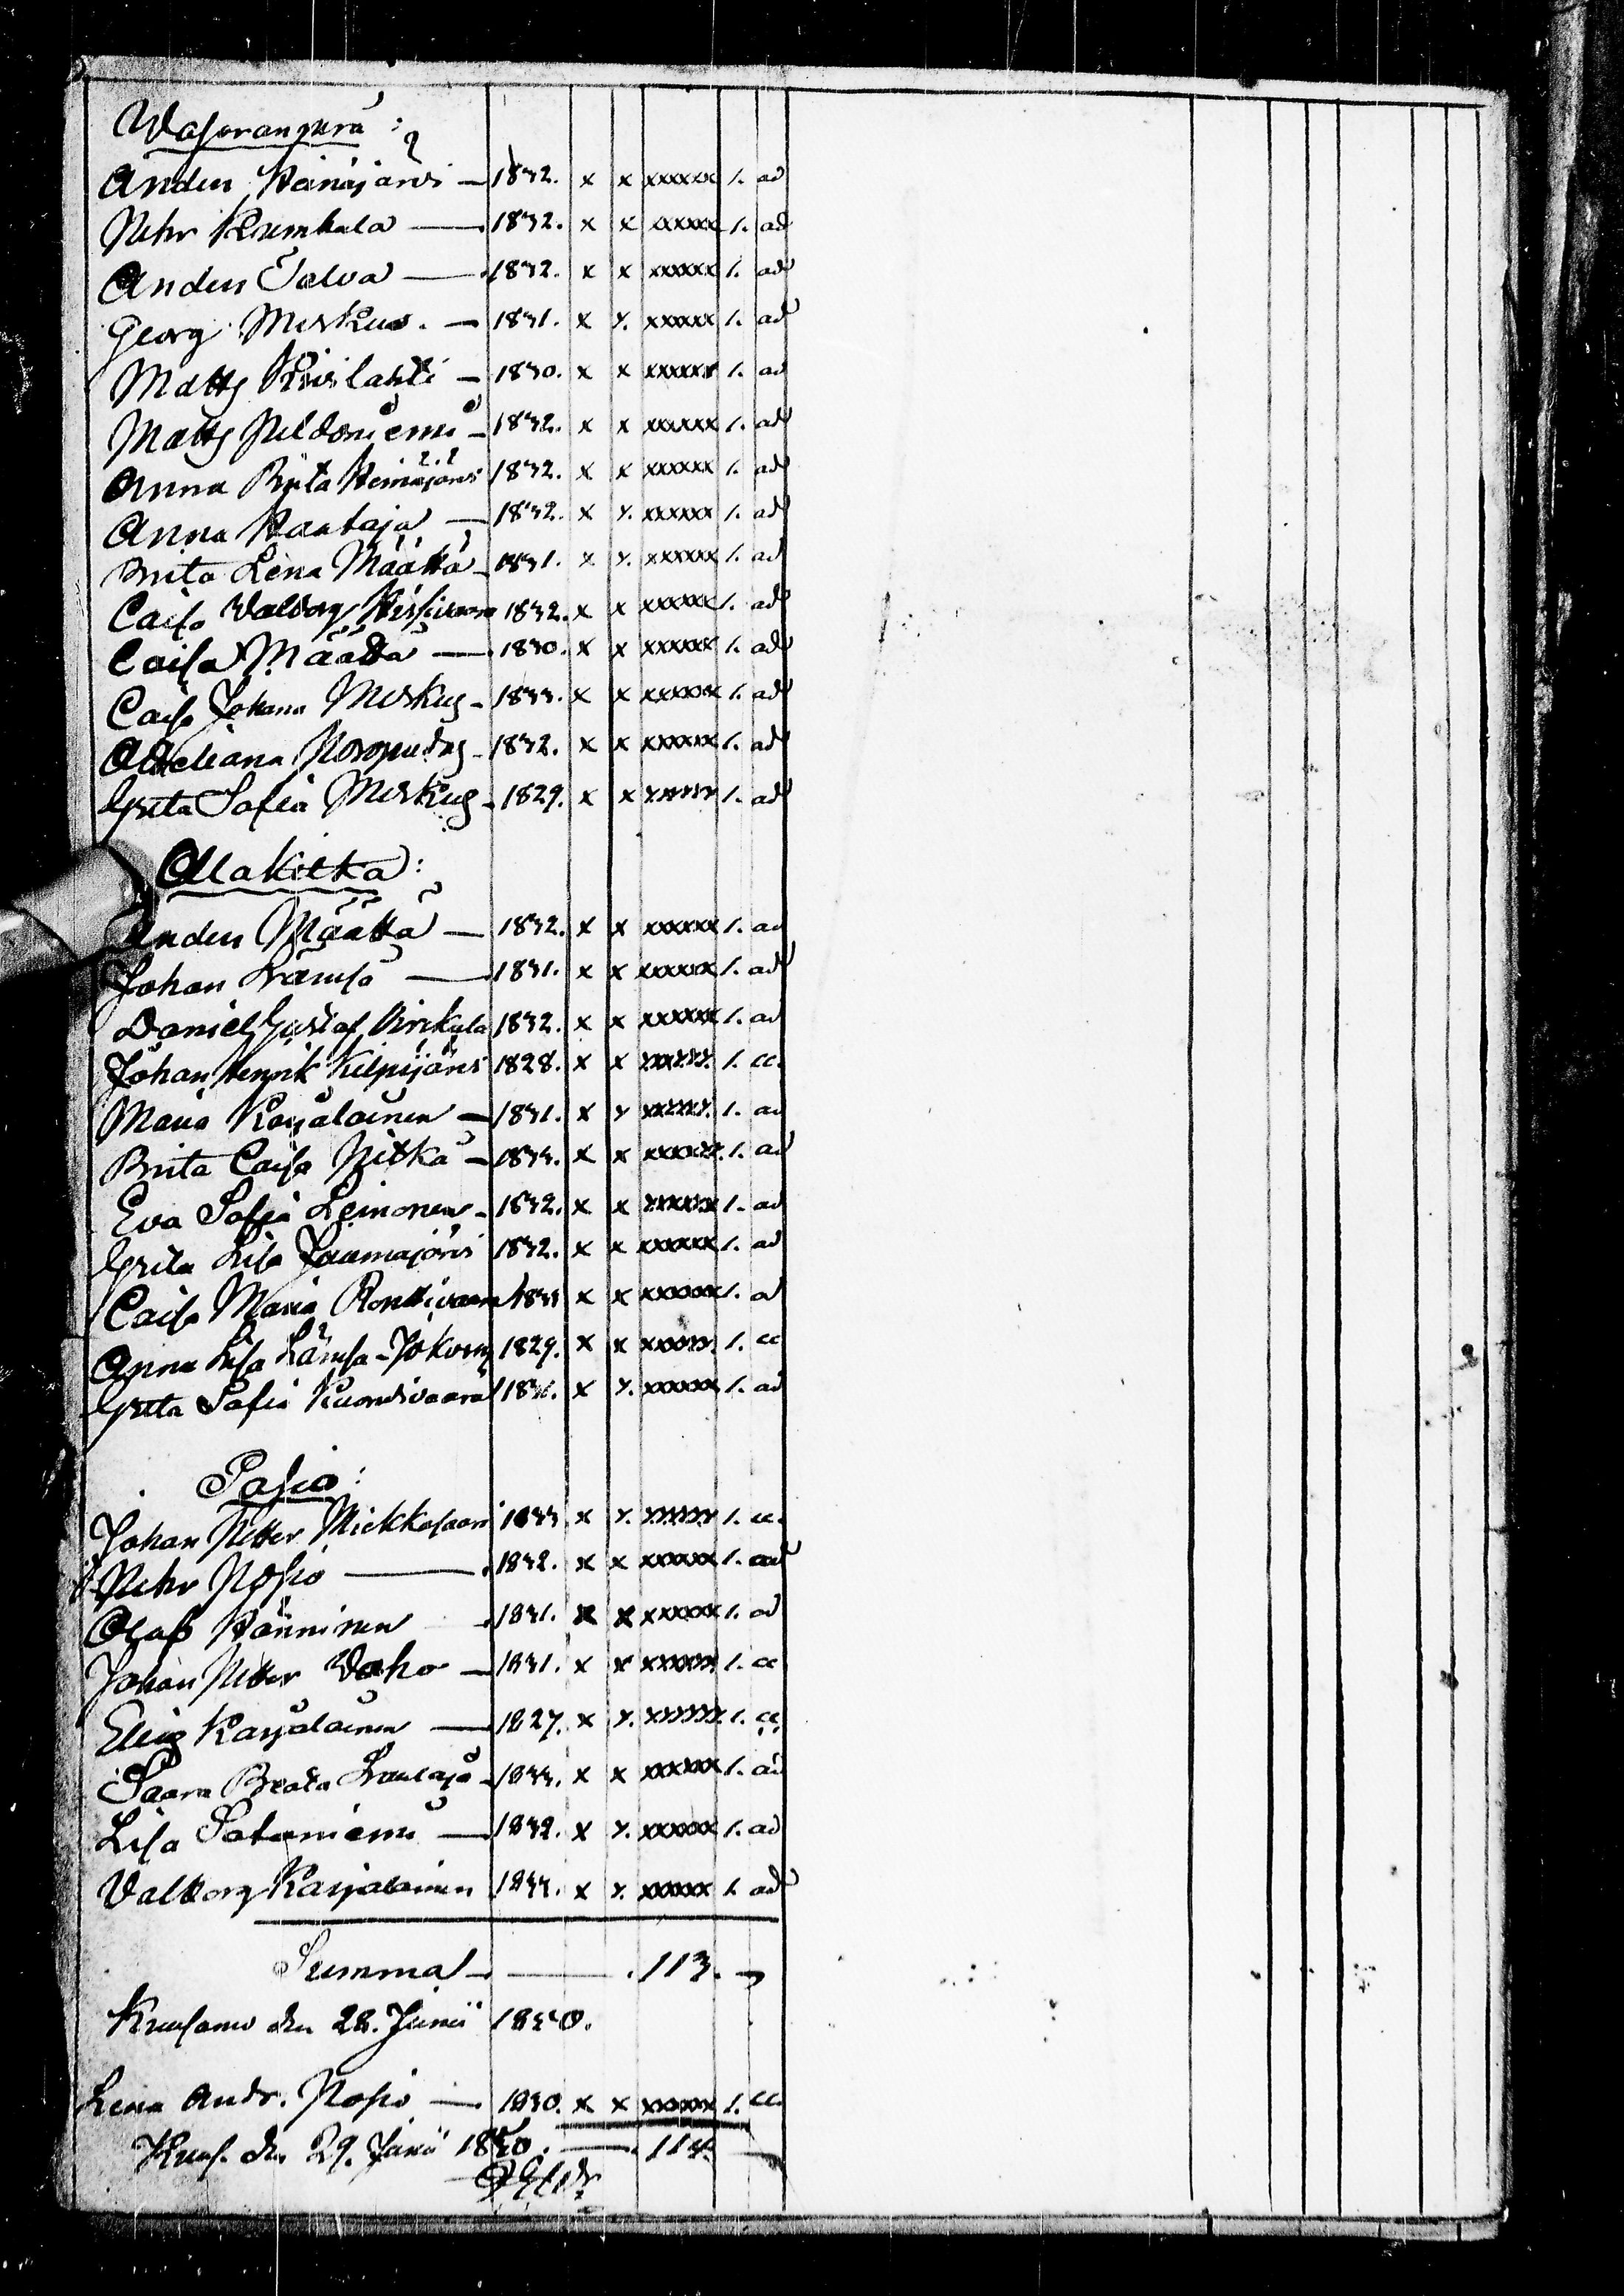 Wasaranperä:
Anders Heinäjärvi — 1832. x x xxxxxx 1. ad
Petter Kumbula — 1832. x x xxxxx 1. ad
Anders Talva — 1832. x x xxxxxx 1. ad
Georg Merkus. — 1831. x x. xxxxxx 1. ad
Matts — 1830. x x xxxxxx 1. ad
Matts Peldoniemi — 1832. x x xxxxxx 1. ad
Anna Brita Heinäjärvi 1832. x x xxxxxx 1. ad
Anna Rautaja — 1832. x x. xxxxxx 1. ad
Brita Lena Määttä — 1831. x x. xxxxxx 1. ad
Caisa Valborg Hirsivaara 1832. x x xxxxxx 1. ad
Caisa Määttä — 1830. x x xxxxxx 1. ad
Caisa Johana Merkus — 1833. x x xxxxxx 1. ad
Adeliana Poropudas — 1832. x x xxxxxx 1. ad
Greta Sofia Merkus — 1829. x x xxxxxx 1. ad
Alakitka:
Anders Määttä — 1832. x x xxxxxx 1. ad
Johan Lämsä — 1831. x x xxxxxx 1. ad
Daniel Gustaf Virkula 1832. x x xxxxxx 1. ad
Johan Henrik Kilpijärvi 1828. x x xxxxxx. 1. cc.
Maria Karjalainen — 1831. x x xxxxxx. 1. ad
Brita Caisa Pitkä — 1833. x x xxxxxx. 1. ad
Eva Sofia Leinonen — 1832. x x xxxxxx 1. ad
Greta Lisa Jaumajärvi 1832. x x xxxxxx 1. ad
Caisa Maria Rontivaara 1833 x x xxxxxx 1. a
Anna Lisa Lämsä - 1829. x x xxxxxx. 1. cc
Greta Sofia Kuontivaara 1831. x x. xxxxxx 1. ad
Posio:
Johan Petter Mickkasaari 1833. x x. xxxxxx 1. cc.
Petter Posio — 1832. x x xxxxxx 1. ad
Olaf Hänninen 1831. x x xxxxxx 1. ad
Johan Petter Vaho — 1831. x x xxxxxx 1. cc
Elias Karjalainen — 1827. x x. xxxxxx. 1. cc
Saara Beata Lautaja — 1833. x x xxxxxx 1. ad
Lisa Sataniemi — 1832. x x. xxxxxx 1. ad
Valborg Karjalainen 1833. x x. xxxxxx 1. ad
Summa — 113.
Kuusamo den 28. Junii 1850.
Lena Andr. Posio — 1830. x x xxxxxx 1. cc.
Kuus. den 29. Junii 1850. — 114.